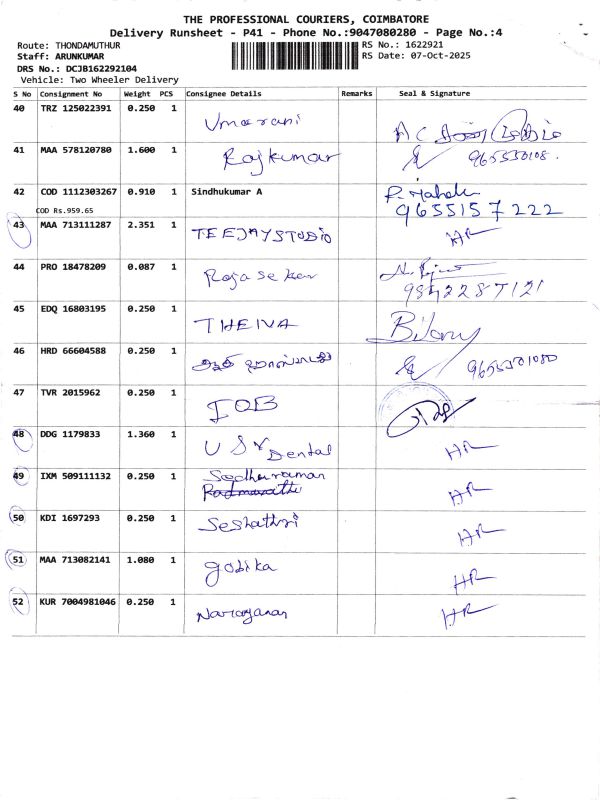 THE PROFESSIONAL COURIERS, COIMBATORE
Delivery Runsheet - P41 - Phone No.:9047080280 - Page No.:4
Route: THONDAMUTHUR RS No.: 1622921
Staff: ARUNKUMAR RS Date: 07-Oct-2025
DRS No.: DCJB162292104
Vehicle: Two Wheeler Delivery
S No Consignment No Weight PCS Consignee Details Remarks Seal & Signature
40 TRZ 125022391 0.250 1 Umarani
41 MAA 578120780 1.600 1 Rajkumar
42 COD 1112303267 0.910 1 Sindhukumar A
COD Rs.959.65 9655157222
43 MAA 713111287 2.351 1 TEEJAYSTUDIO HR
44 PRO 18478209 0.087 1 Rajasekar
9842287121
45 EDQ 16803195 0.250 1 THEIVA
46 HRD 66604588 0.250 1
47 TVR 2015962 0.250 1 IOB
48 DDG 1179833 1.360 1 U S V Dental HR
49 IXM 509111132 0.250 1 Sedhuraman HR
50 KDI 1697293 0.250 1 Seshathri HR
51 MAA 713082141 1.080 1 gobika HR
52 KUR 7004981046 0.250 1 Narayanan HR